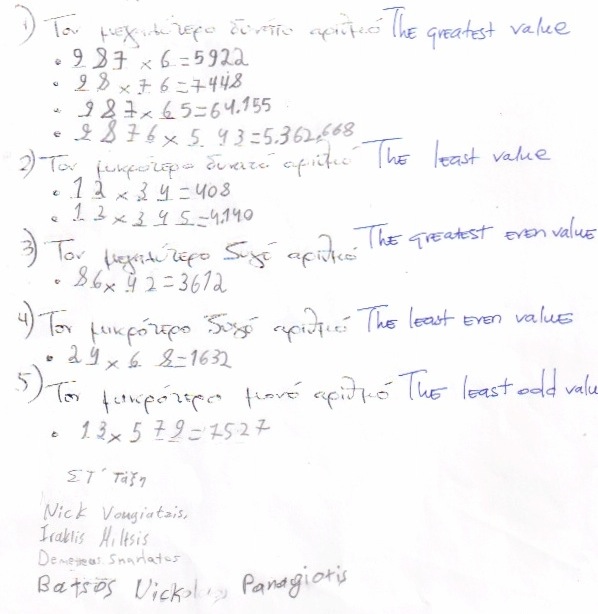 1) Τον μεγαλύτερο δυνατό αριθμό The greatest value
• 987 × 6=5922
• 98 × 76=7448
• 987 × 65=64.155
• 9876 × 543=5.362.668
2) Τον μικρότερο δυνατό αριθμό The least value
• 12 × 34=408
• 12 × 345=4.140
3) Τον μεγαλύτερο ζυγό αριθμό The greatest even value
• 86 × 42=3612
4) Τον μικρότερο ζυγό αριθμό The least even values
• 24 × 68=1632
5) Τον μικρότερο μονό αριθμό The least odd valu
• 13 × 579=7527
ΣΤ΄ Τάξη
Nick Vougiatzis,
Iraklis Hiltsis
Batsos Panagiotis